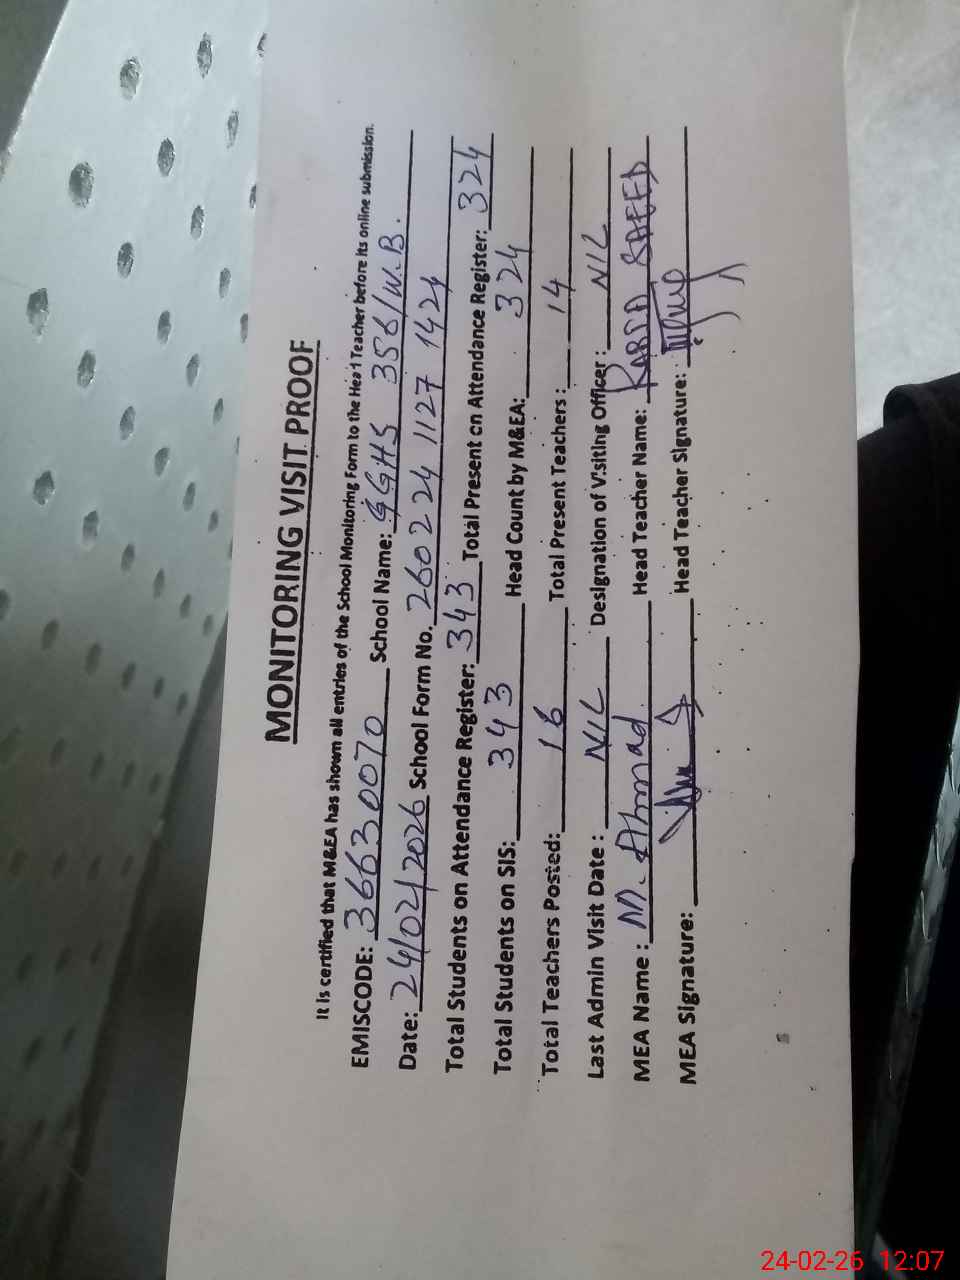 MONITORING VISIT PROOF
It is certified that M&EA has shown all entries of the School Monitoring Form to the Head Teacher before its online submission.
EMISCODE: 36630070 School Name: GGHS 356/W.B.
Date: 24/02/2026 School Form No. 260224 1127 1424
Total Students on Attendance Register: 343 Total Present on Attendance Register: 324
Total Students on SIS: 343 Head Count by M&EA: 324
Total Teachers Posted: 16 Total Present Teachers: 14
Last Admin Visit Date: NIL Designation of Visiting Officer: NIL
MEA Name: M. Ahmad Head Teacher Name: SAEED
MEA Signature: Head Teacher Signature:
24-02-26 12:07